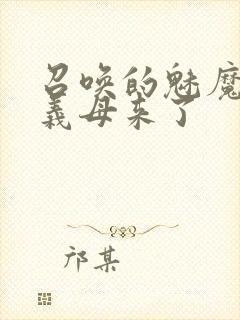 召唤的魅魔
义母来了
邝某